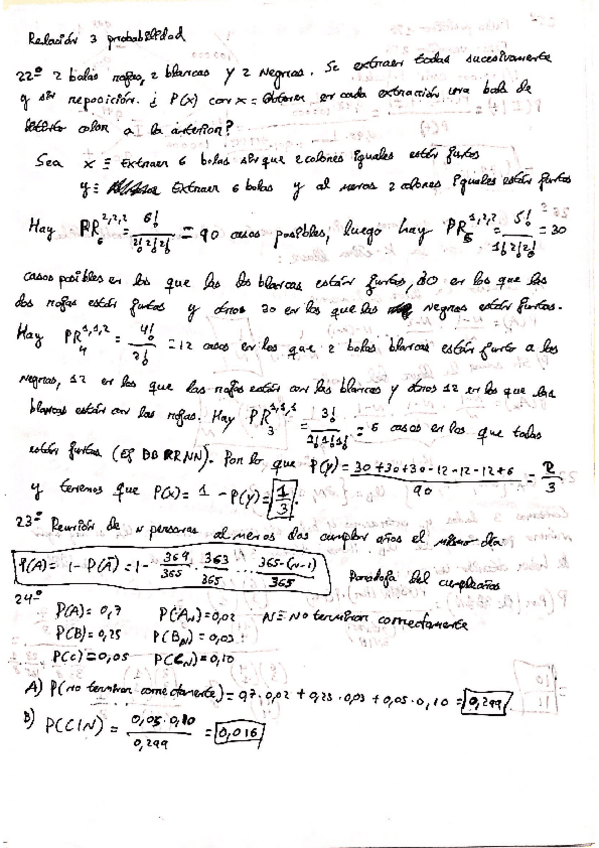 Relación 3 probabilidad
22º 2 bolas rojas, 2 blancas y 2 negras. Se extraen todas sucesivamente
y sin reposición. ¿ P(x) con x = obtener en cada extracción una bola de
color a la anterior?
Sea x ≡ Extraer 6 bolas sin que 2 colores iguales estén juntos
y ≡ Extraer 6 bolas y al menos 2 colores iguales estén juntos
Hay PR₆^{2,2,2} = 6!/(2!2!2!) = 90 casos posibles, luego hay PR₅^{1,2,2} = 5!/(1!2!2!) = 30
casos posibles en los que las dos blancas están juntas, 30 en los que las
dos rojas están juntas y otros 30 en los que las negras están juntas.
Hay PR₄^{1,1,2} = 4!/2! = 12 casos en los que 2 bolas blancas están junto a las
negras, 12 en los que las rojas están con las blancas y otros 12 en los que las
blancas están con las rojas. Hay PR₃^{1,1,1} = 3!/(1!1!1!) = 6 casos en los que todas
están juntas (Ej BB RR NN). Por lo que P(y) = (30+30+30-12-12-12+6)/90 = 2/3
y tenemos que P(x) = 1 - P(y) = 1/3.
23º Reunión de n personas al menos dos cumplan años el mismo día
P(A) = 1 - P(Ā) = 1 - 364/365 · 363/365 ... 365-(n-1)/365 Paradoja del cumpleaños
24º
P(A) = 0,7 P(A_N) = 0,02 N ≡ No terminar correctamente
P(B) = 0,25 P(B_N) = 0,03
P(C) = 0,05 P(C_N) = 0,10
A) P(no terminar correctamente) = 0,7 · 0,02 + 0,25 · 0,03 + 0,05 · 0,10 = 0,299
B) P(C|N) = (0,05 · 0,10)/0,299 = 0,016